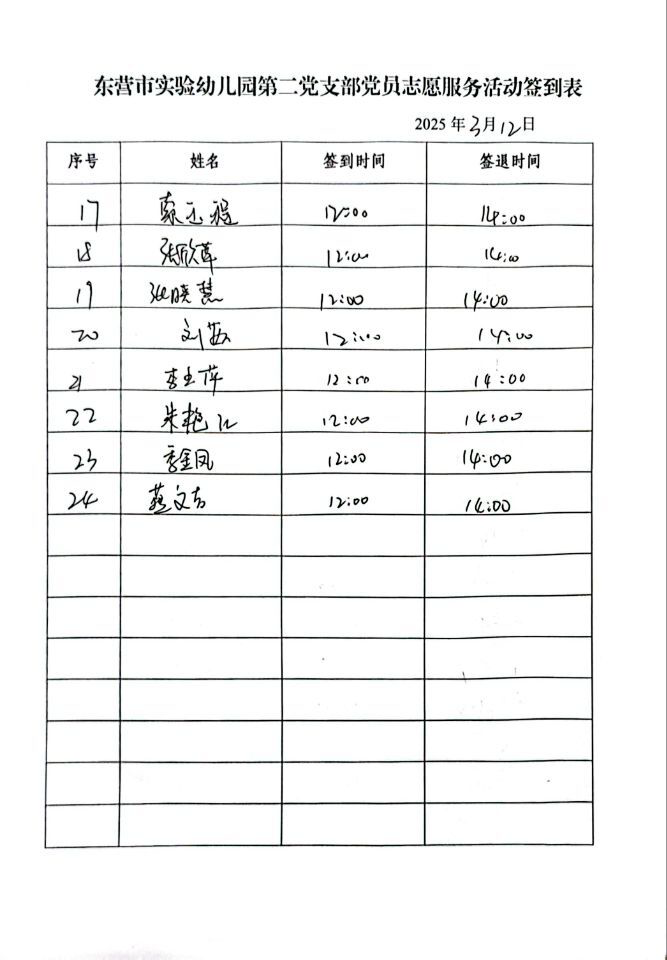 东营市实验幼儿园第二党支部党员志愿服务活动签到表
2025 年 3 月 12 日
序号 姓名 签到时间 签退时间
17 12:00 14:00
18 张欣萍 12:00 14:00
19 张晓慧 12:00 14:00
20 刘茹 12:00 14:00
21 李玉萍 12:00 14:00
22 朱艳红 12:00 14:00
23 季金凤 12:00 14:00
24 12:00 14:00